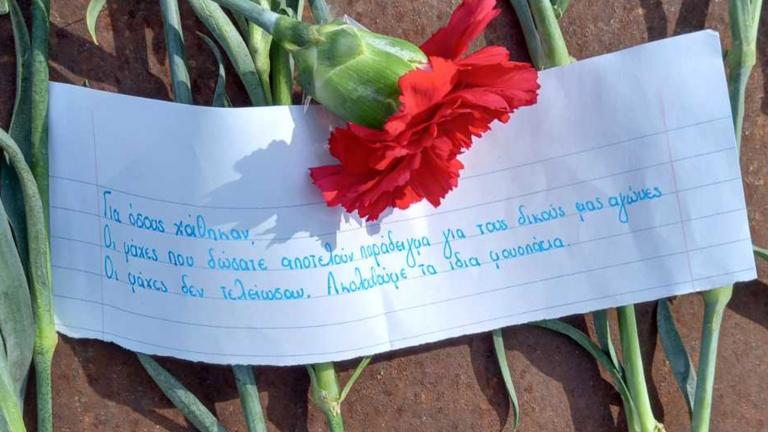 Για όσους χάθηκαν.
Οι μάχες που δώσατε αποτελούν παράδειγμα για τους δικούς μας αγώνες
Οι μάχες δεν τελείωσαν. Ακολουθούμε τα ίδια μουοπάτια.